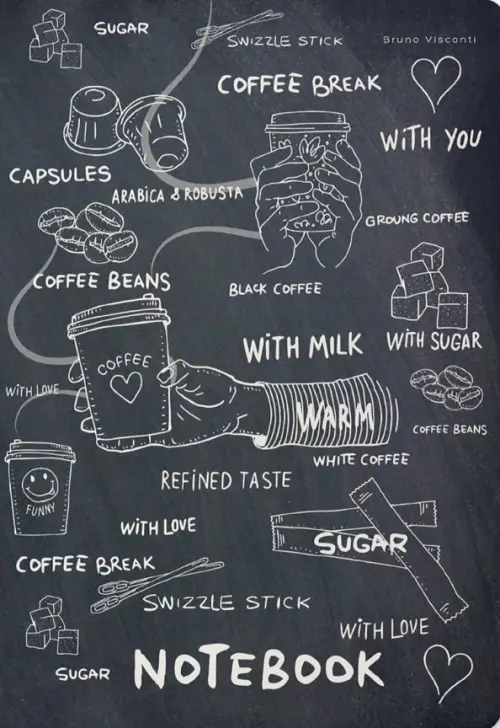 SUGAR
SWIZZLE STICK
Bruno Visconti
COFFEE BREAK
WITH YOU
CAPSULES
ARABICA & ROBUSTA
GROUNG COFFEE
COFFEE BEANS
BLACK COFFEE
WITH MILK
WITH SUGAR
COFFEE
WITH LOVE
WARM
COFFEE BEANS
WHITE COFFEE
REFINED TASTE
FUNNY
WITH LOVE
SUGAR
COFFEE BREAK
SWIZZLE STICK
WITH LOVE
SUGAR
NOTEBOOK